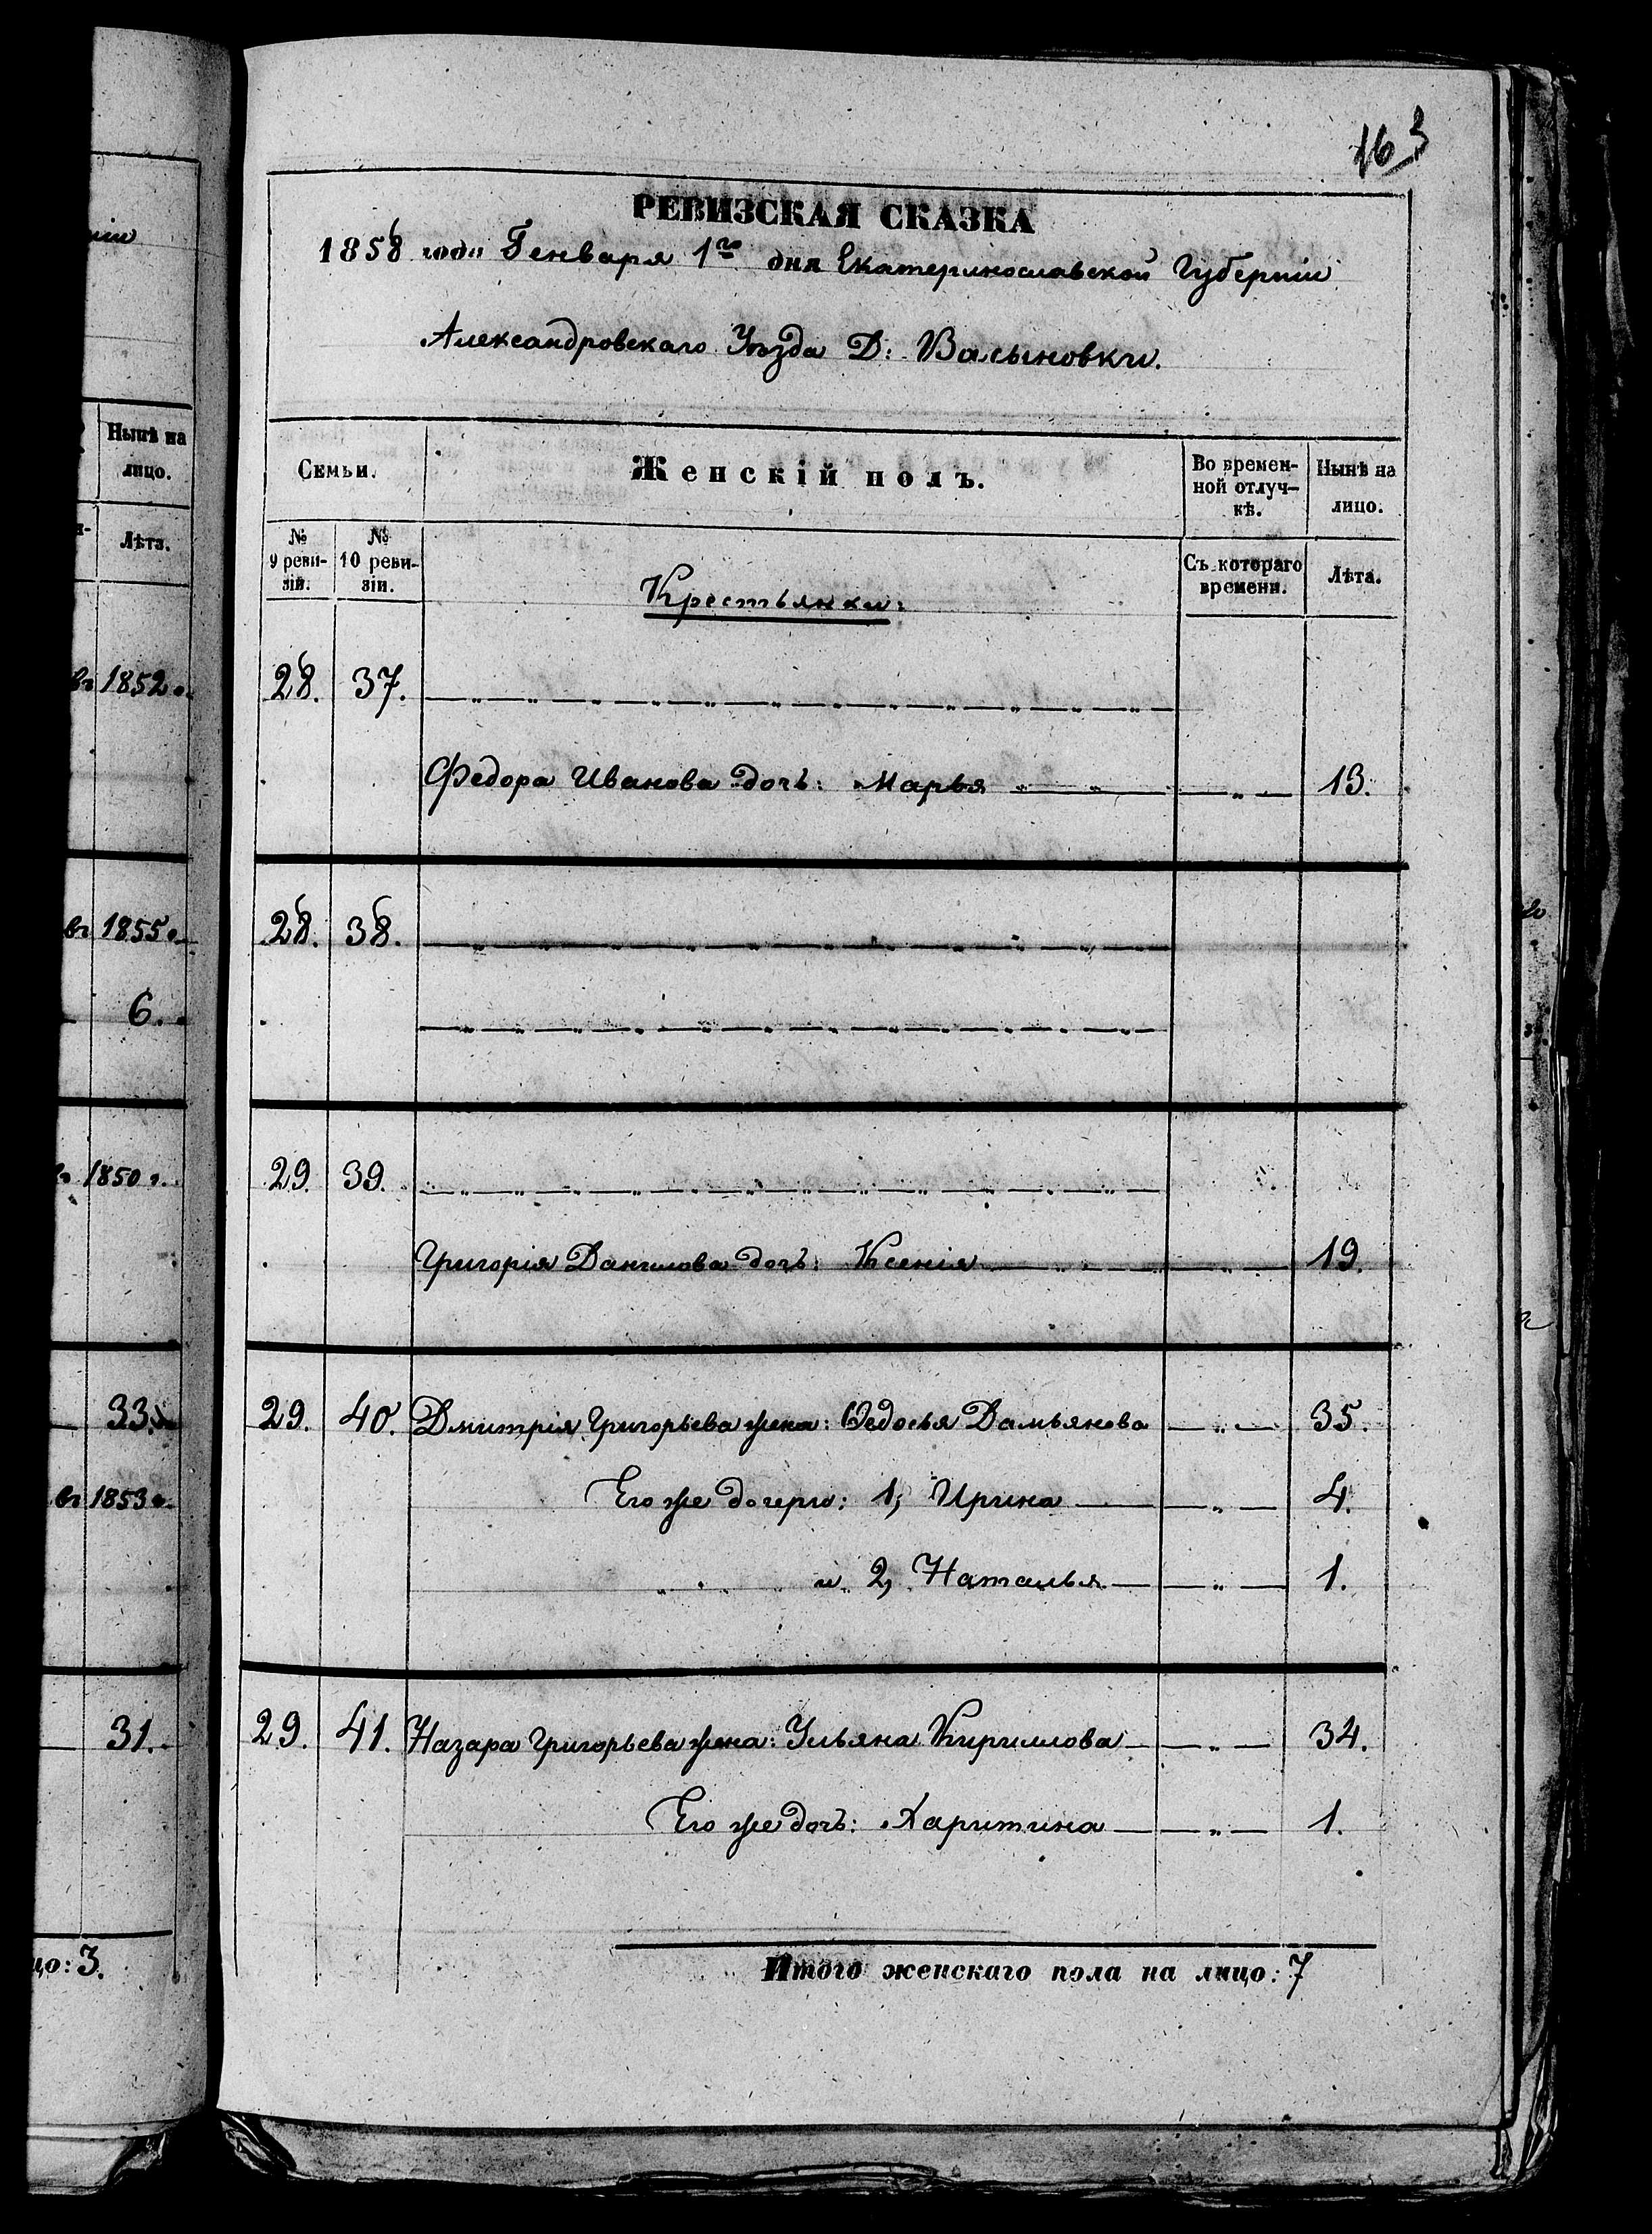 163
РЕВИЗСКАЯ СКАЗКА
1858 года Генваря 1го дня Екатеринославской Губерніи
Александровскаго Уѣзда Д: Васыновки.
Семьи.
Женскій полъ.
Во времен-
ной отлуч-
кѣ.
Нынѣ на
лицо.
№
9 реви-
зіи.
№
10 реви-
зіи.
Съ котораго
времени.
Лѣта.
Крестьянки:
28. 37.
Федора Иванова дочь: Марья — „ — 13.
28. 38.
29. 39.
Григорія Данилова дочь: Ксенія — „ — 19.
29. 40. Дмитрія Григорьева жена: Ѳедосья Дамьянова — „ — 35.
Его же дочери: 1, Ирина — „ — 4.
и 2, Наталья — „ — 1.
29. 41. Назара Григорьева жена: Ульяна Кирилова — „ — 34.
Его же дочь: Харитина — „ — 1.
Итого женскаго пола на лицо: 7
Нынѣ на
лицо.
Лѣта.
въ 1852 г.
въ 1855 г.
6.
1850 г.
33.
въ 1853 г.
31.
цо: 3.